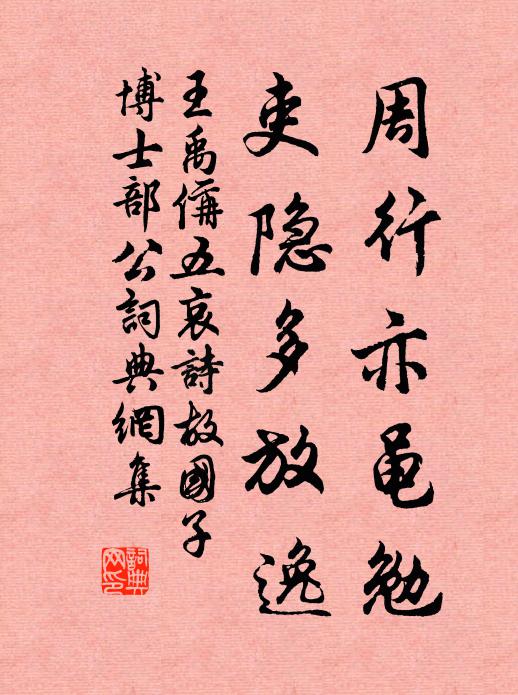 周行亦黾勉
吏隐多放逸
王禹偁五哀詩故國子
博士部公詞典網集
詞典网印